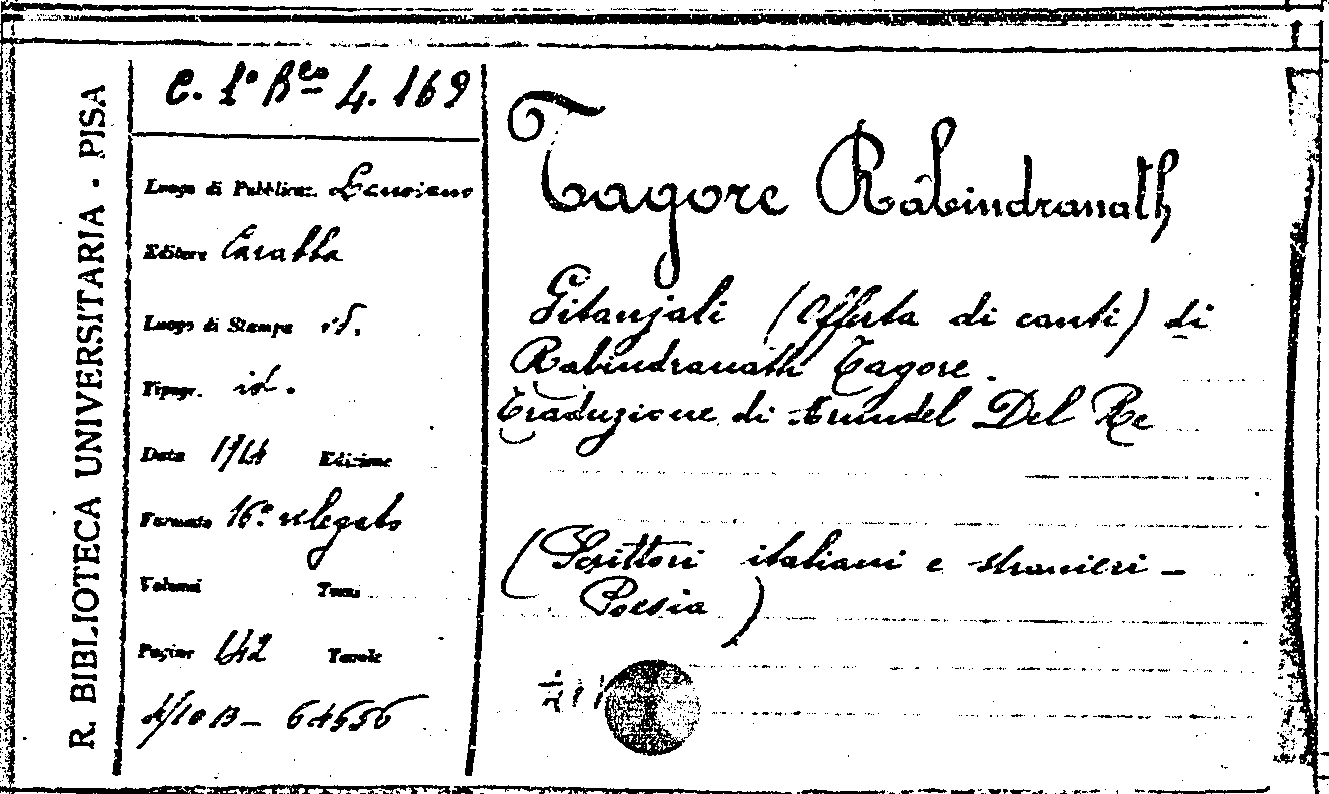 R. BIBLIOTECA UNIVERSITARIA - PISA
C. 1° B<sup>co</sup> 4. 169
Luogo di Pubblicaz. Lanciano
Editore Carabba
Luogo di Stampa id.
Tipogr. id.
Data 1914 Edizione
Formato 16° rilegato
Volumi Tomi
Pagine 142 Tavole
64556
Tagore Rabindranath
Gitanjali (Offerta di canti) di
Rabindranath Tagore.
Traduzione di Arundel Del Re
(Scrittori italiani e stranieri -
Poesia)